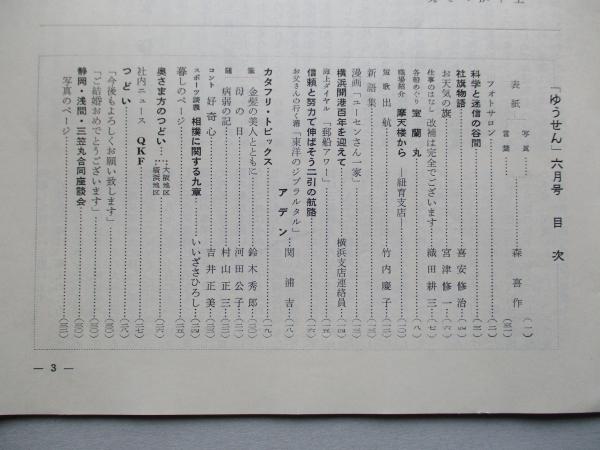 「ゆうせん」六月号 目次
表紙 写真 言葉 森喜作 (一)
フォトサロン (二)
科学と迷信の谷間 喜安修治 (四)
社旗物語 宮津修一 (六)
お天気の旗
仕事のはなし 改補は完全でございます 織田耕三 (七)
各船めぐり 室蘭丸 (八)
職場紹介 摩天楼から ―紐育支店―
短歌 出航 竹内慶子
新語集
漫画「ユーセンさん一家」
横浜開港百年を迎えて 横浜支店連絡員
海上ダイヤル「郵船アワー」
信頼と努力で伸ばそう二引の航路
お父さんの行く港「東洋のジブラルタル」アデン 関浦吉 (一八)
カタフリ・トピックス (一九)
随筆 金髪の美人とともに 鈴木秀郎
母の日 河田公子
病弱の記 村山正三
コント 好奇心 吉井正美
スポーツ談義 相撲に関する九章 いいざさひろし
暮しのページ
奥さま方のつどい 大阪地区 横浜地区
社内ニュース QKF
つどい
「今後もよろしくお願い致します」
「ご結婚おめでとうございます」
静岡・浅間・三笠丸合同座談会
写真のページ
— 3 —